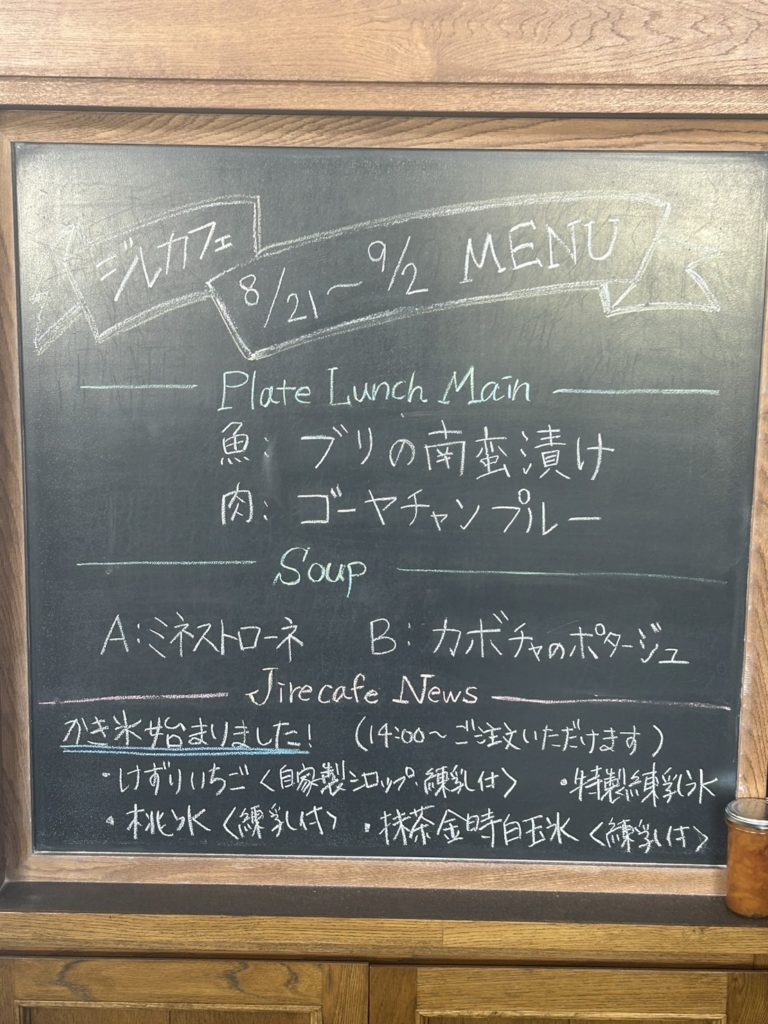 ジルカフェ 8/21〜9/2 MENU
Plate Lunch Main
魚: ブリの南蛮漬け
肉: ゴーヤチャンプルー
Soup
A:ミネストローネ B:カボチャのポタージュ
Jirecafe News
かき氷始まりました! (14:00〜ご注文いただけます)
・けずりいちご〈自家製シロップ、練乳付〉 ・特製練乳氷
・桃氷〈練乳付〉 ・抹茶金時白玉氷〈練乳付〉